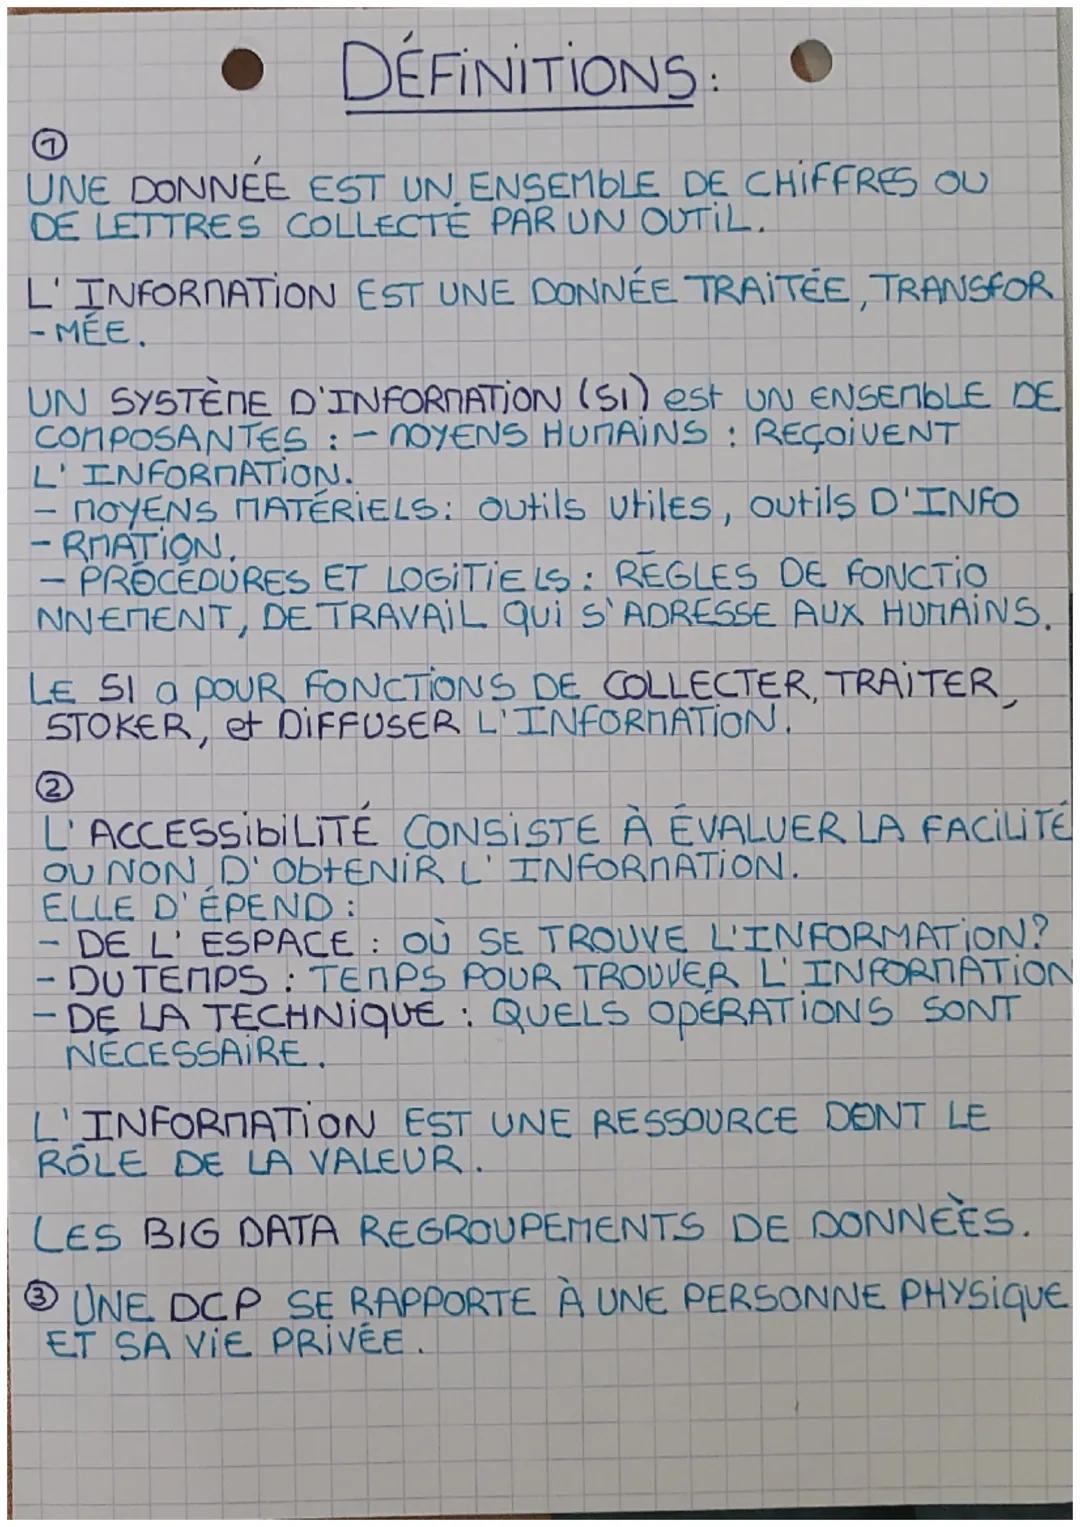 DÉFINITIONS:
①
UNE DONNÉE EST UN ENSEMBLE DE CHIFFRES OU
DE LETTRES COLLECTÉ PAR UN OUTIL.
L'INFORMATION EST UNE DONNÉE TRAITÉE, TRANSFOR
-MÉE.
UN SYSTÈME D'INFORMATION (SI) est UN ENSEMBLE DE
COMPOSANTES : - MOYENS HUMAINS : REÇOIVENT
L'INFORMATION.
- MOYENS MATÉRIELS: OUtils UtiLES, OUtilS D'INFO
-RMATION.
- PROCÉDURES ET LOGITIELS: RÈGLES DE FONCTIO
NNEMENT, DE TRAVAIL QUI S'ADRESSE AUX HUMAINS.
LE SI a POUR FONCTIONS DE COLLECTER, TRAITER,
STOKER, et DIFFUSER L'INFORMATION.
②
L'ACCESSIBILITÉ CONSISTE À ÉVALUER LA FACILITÉ
OU NON D'ObtENIR L'INFORMATION.
ELLE D'ÉPEND :
- DE L'ESPACE : OÙ SE TROUVE L'INFORMATION?
- DU TEMPS : TEMPS POUR TROUVER L'INFORMATION
- DE LA TECHNIQUE : QUELS OPÉRATIONS SONT
NÉCESSAIRE.
L'INFORMATION EST UNE RESSOURCE DONT LE
RÔLE DE LA VALEUR.
LES BIG DATA REGROUPEMENTS DE DONNÉÈS.
③ UNE DCP SE RAPPORTE À UNE PERSONNE PHYSIQUE
ET SA VIE PRIVÉE.